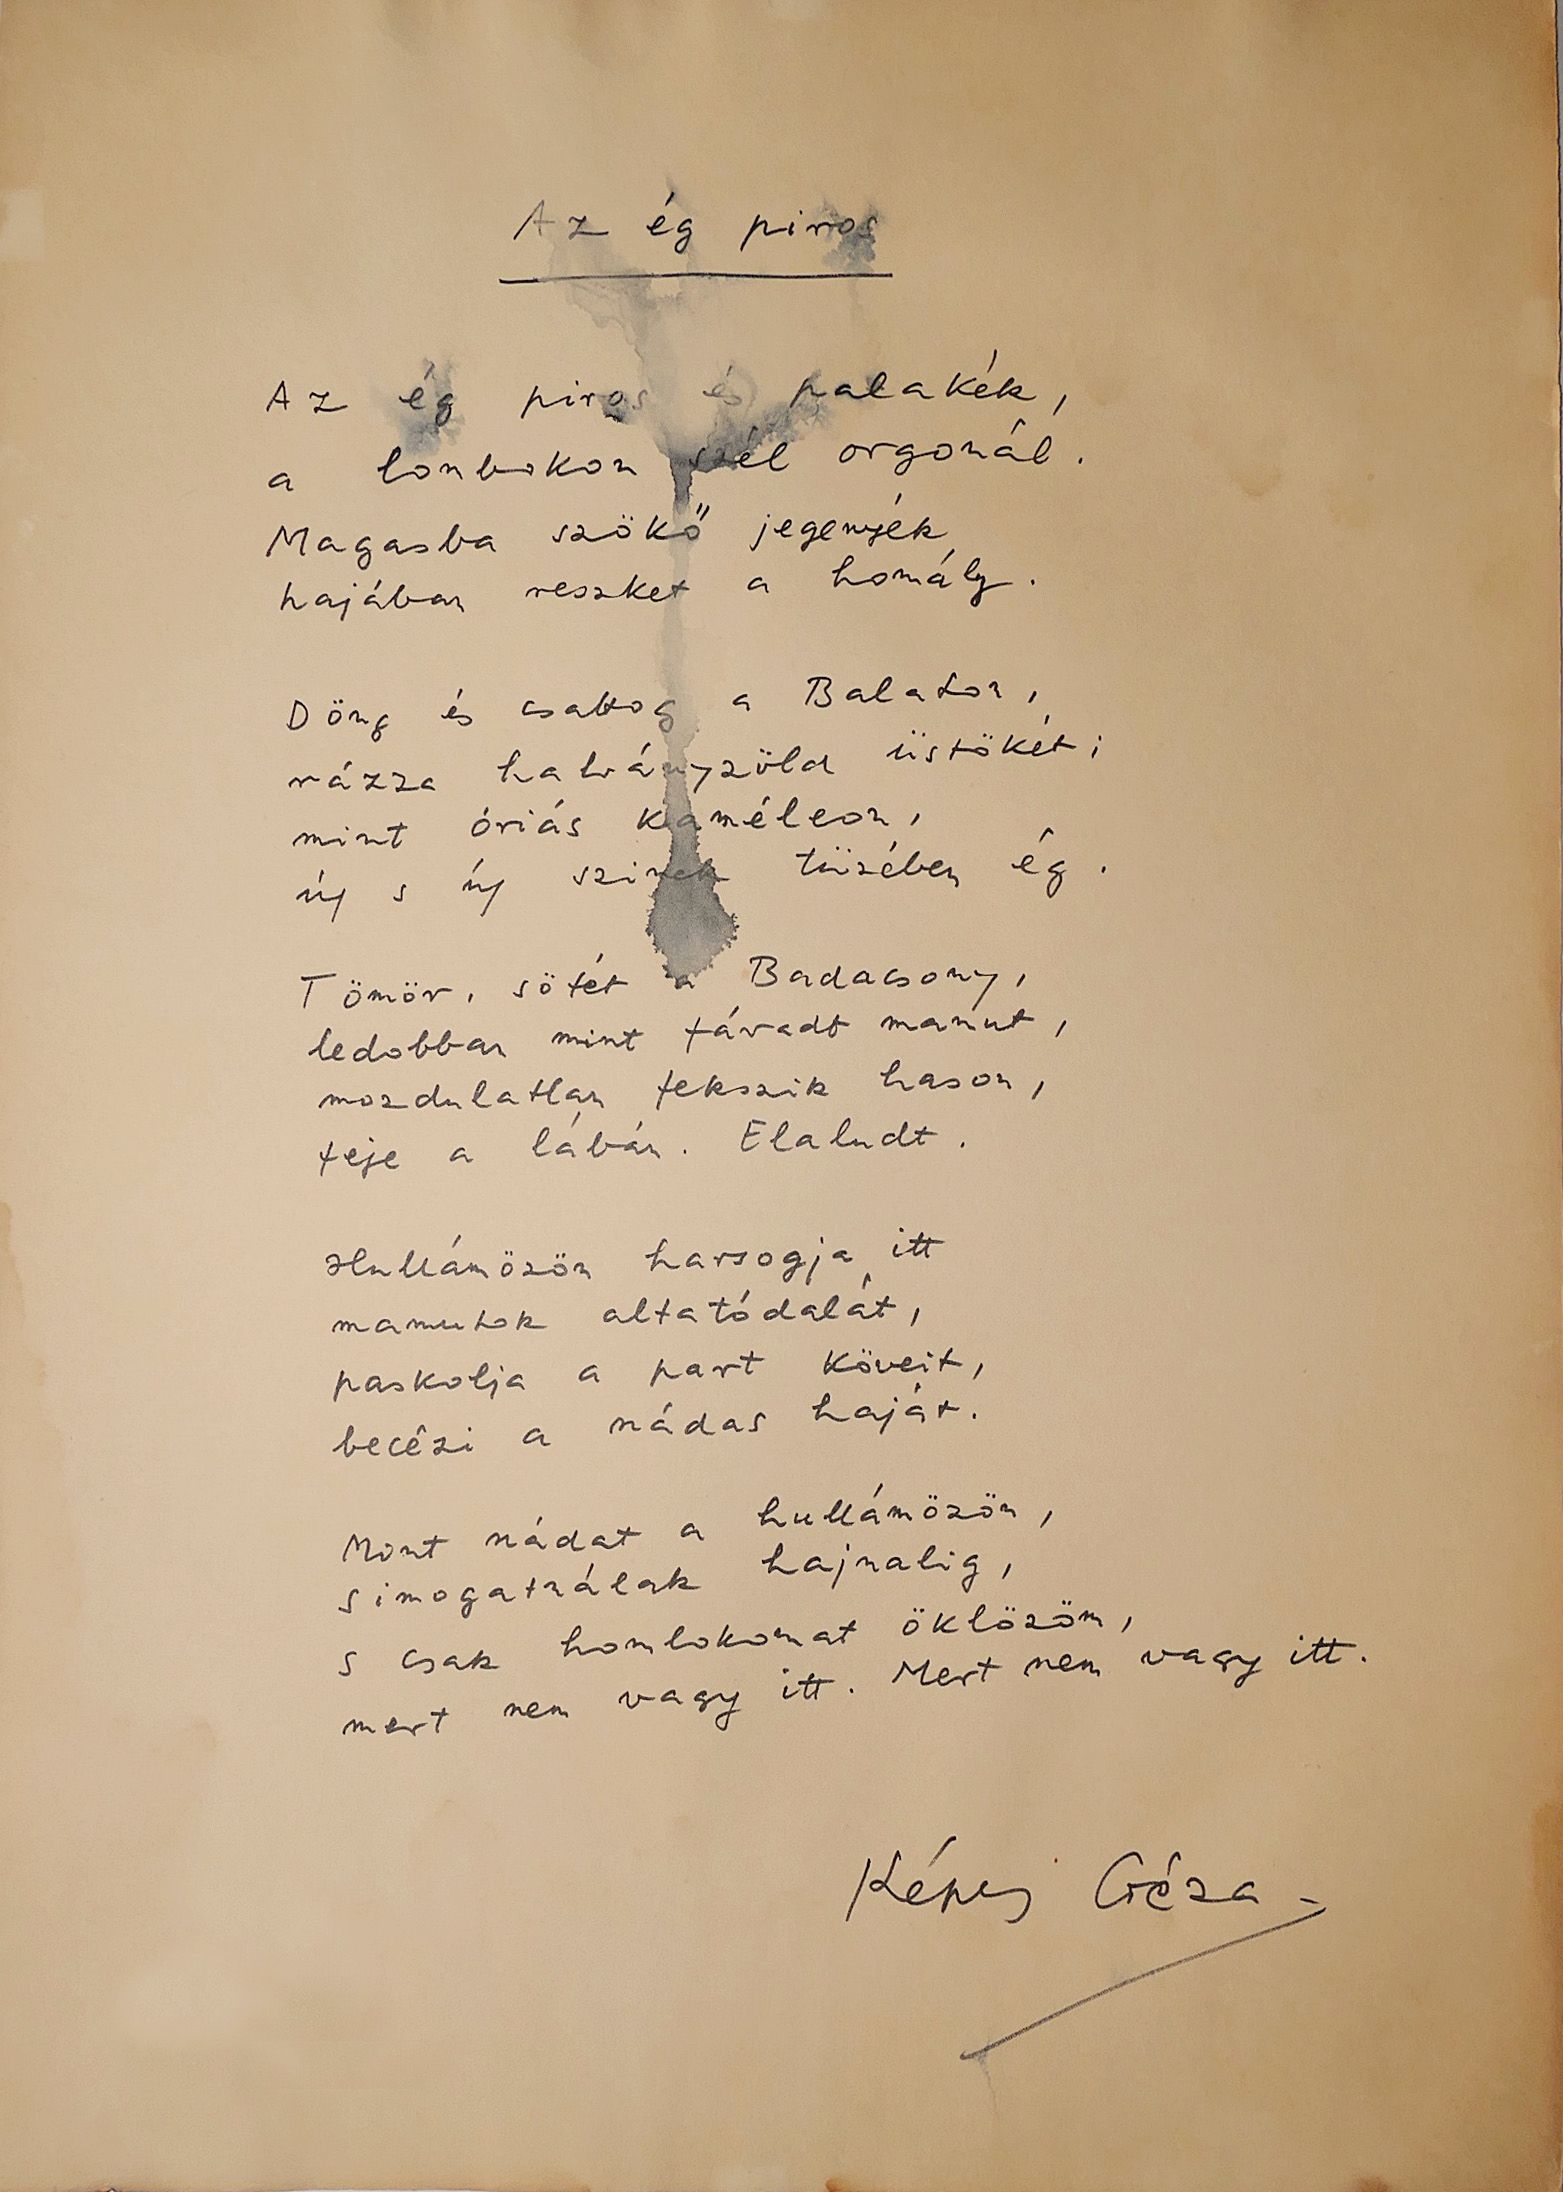 Az ég piros
Az ég piros és palakék,
a lombokon szél orgonál.
Magasba szökő jegenyék
hajában reszket a homály.
Döng és csattog a Balaton,
rázza halványzöld üstökét;
mint óriás kaméleon,
új s új szinek tüzében ég.
Tömör, sötét a Badacsony,
ledobban mint fáradt mamut,
mozdulatlan fekszik hason,
feje a lábán. Elaludt.
Hullámözön harsogja itt
mamutok altatódalát,
paskolja a part köveit,
becézi a nádas haját.
Mint nádat a hullámözön,
simogatnálak hajnalig,
s csak homlokomat öklözöm,
mert nem vagy itt. Mert nem vagy itt.
Képes Géza